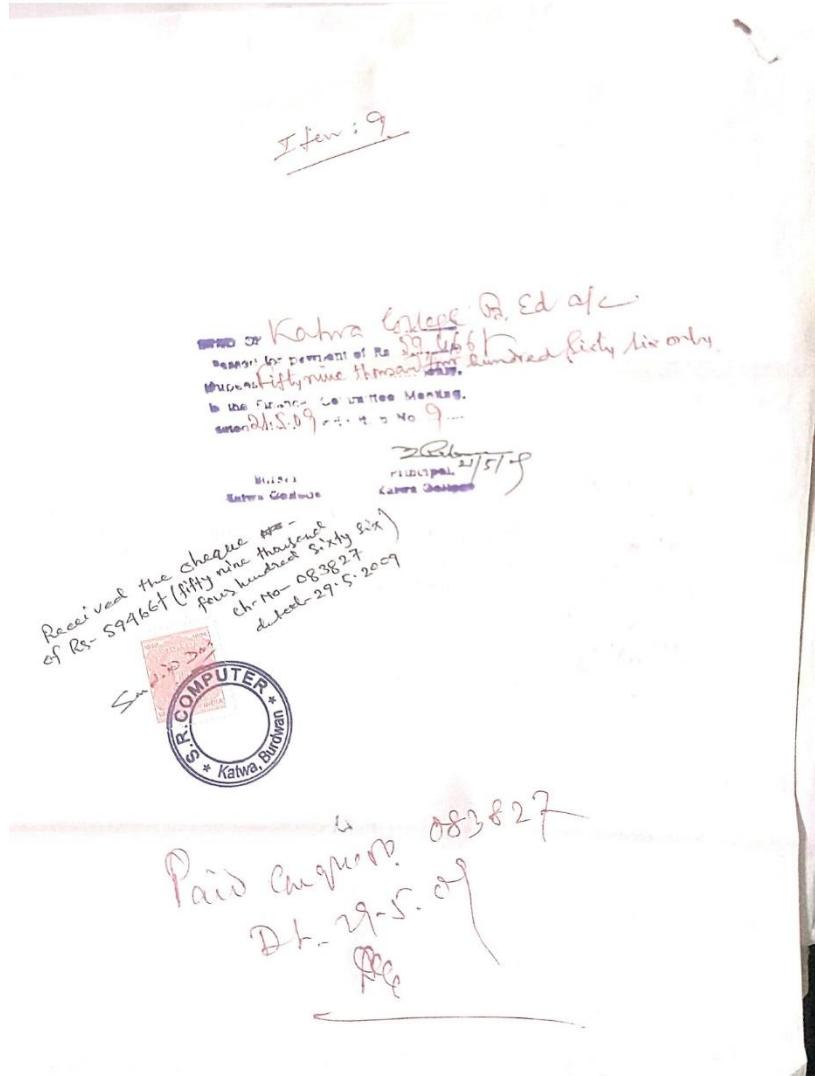 Item : 9
Katwa College B. Ed a/c
Passed for payment of Rs 59,466/-
Rupees Fifty nine thousand four hundred Sixty six only
in the Finance Committee Meeting.
dated 21.5.09 No 9
21/5/09
Principal
Katwa College
Katwa College
Received the cheque
of Rs- 59466/- (fifty nine thousand
four hundred sixty six)
ch- No- 083827
dated- 29.5.2009
S.R. COMPUTER
* Katwa, Burdwan *
Paid 083827
Dt- 29-5-09